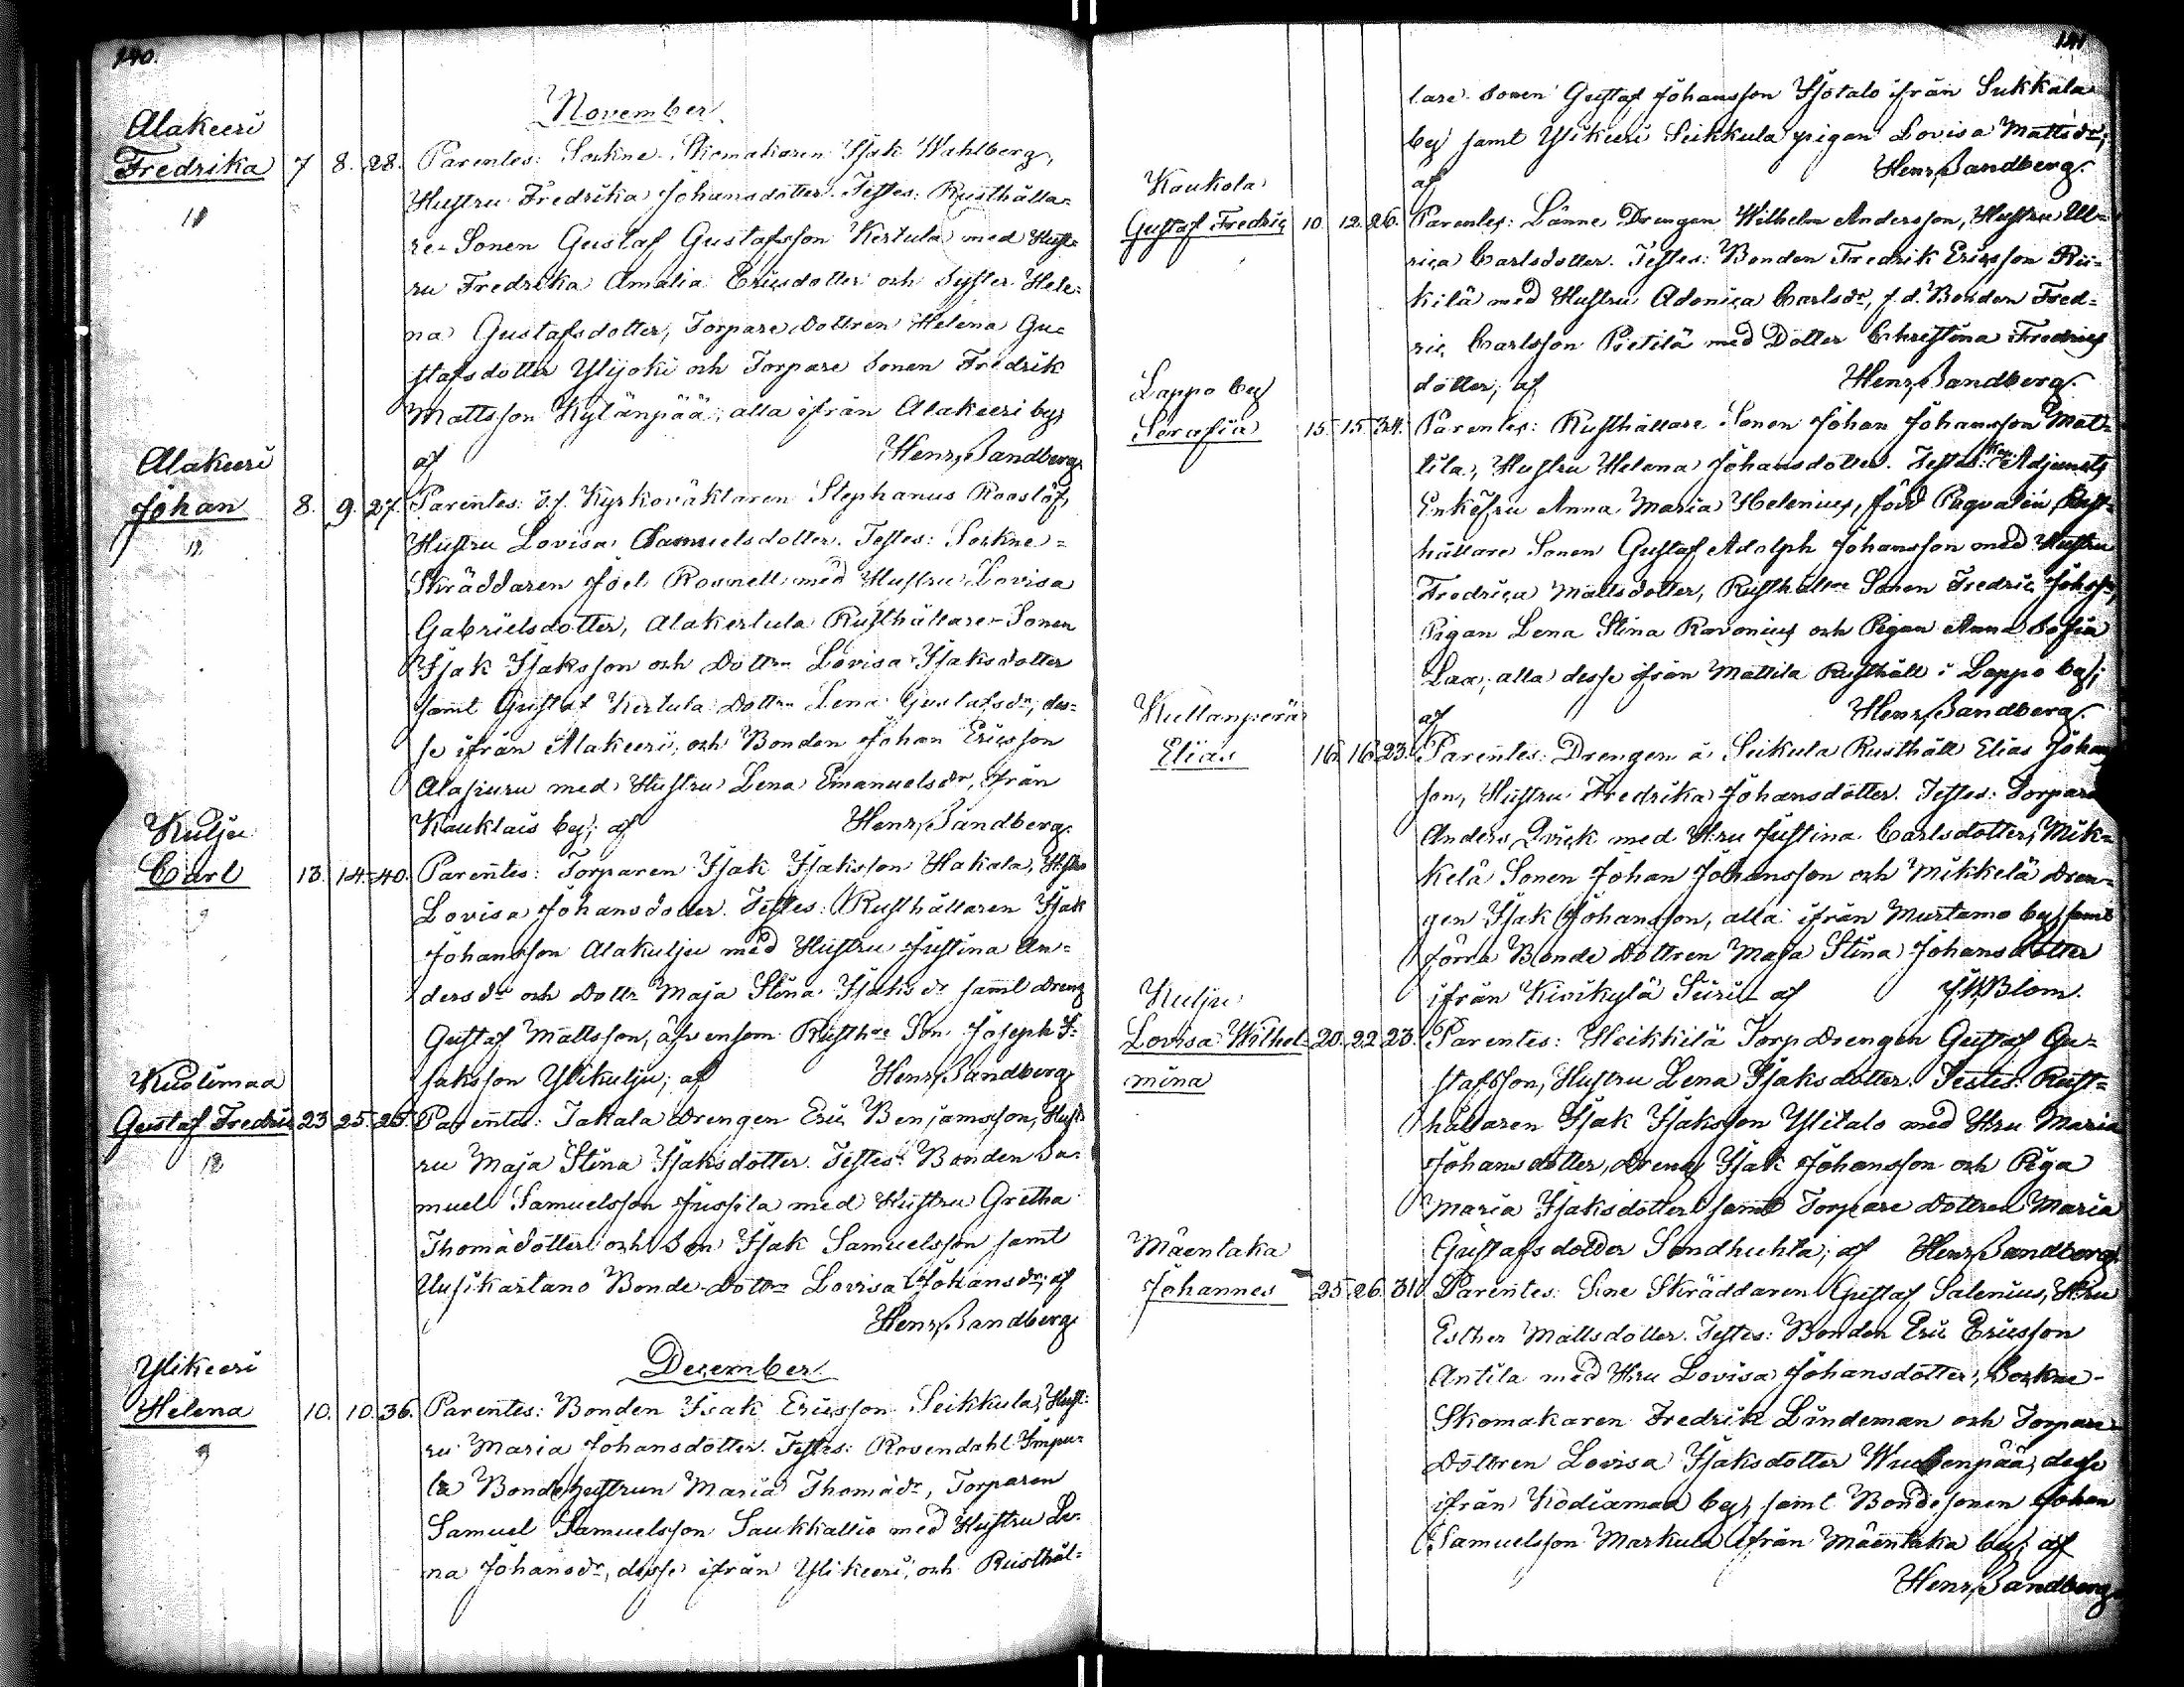 140.
November
Alakeeri
Fredrika 7 8. 28. Parentes: Sockne-Skomakaren Isak Wahlberg,
18
Hustru Fredrika Johansdotter. Testes: Rusthålla-
re-Sonen Gustaf Gustafsson Kertula med Hust-
ru Fredrika Amalia Ericsdotter och Syster Hele-
na Gustafsdotter, Torpare Dottren Helena Gu-
stafsdotter Ylijoki och Torpare Sonen Fredrik
Mattsson Kylänpää; alla ifrån Alakeeri by;
af Henr. Sandberg.
Alakeeri
Johan 8. 9. 27. Parentes: d.f. Kyrkoväktaren Stephanus Rooslöf,
12
Hustru Lovisa Samuelsdotter. Testes: Sockne-
Skräddaren Joel Rosnell med Hustru Lovisa
Gabrielsdotter, Alakertula Rusthållare-Sonen
Isak Isaksson och Dottrn Lovisa Isaksdotter
samt Gustaf Kertula Dottrn Lena Gustafsdr, des-
se ifrån Alakeeri; och Bonden Johan Ericsson
Alapiuru med Hustru Lena Emanuelsdr, ifrån
Kauklais by; af Henr. Sandberg.
Kulju
Carl 13. 14. 40. Parentes: Torparen Isak Isaksson Hakala, Hustru
9
Lovisa Johansdotter. Testes: Rusthållaren Isak
Johansson Alakulju med Hustru Justina An-
dersdr och Dottr Maja Stina Isaksdr samt Dreng
Gustaf Mattsson, äfvensom Rusthre Son Joseph I-
saksson Ylikulju; af Henr. Sandberg.
Kuolimaa
Gustaf Fredric 23 25. 25. Parentes: Jakala Drengen Eric Benjamsson, Hust-
12
ru Maja Stina Isaksdotter. Testes: Bonden Sa-
muel Samuelsson Jussila med Hustru Gretha
Thomädotter och Son Isak Samuelsson samt
Uusikartano Bonde-Dottrn Lovisa Johansdr; af
Henr. Sandberg
December
Ylikeeri
Helena 10. 10. 36. Parentes: Bonden Isak Ericsson Seikkula, Hust-
9
ru Maria Johansdotter. Testes: Rosendahl Impu-
la Bondehustrun Maria Thomädr, Torparen
Samuel Samuelsson Saukkallio med Hustru Le-
na Johansdr, desse ifrån Ylikeeri; och Rusthål-
141
lare Sonen Gustaf Johansson Isotalo ifrån Sukkala
by samt Ylikeeri Seikkula pigan Lovisa Mattsdr;
af Henr. Sandberg.
Kaukola
Gustaf Fredric 10. 12. 26. Parentes: Länne Drengen Wilhelm Andersson, Hustru Ul-
rica Carlsdotter. Testes: Bonden Fredrik Ericsson Rii-
kilä med Hustru Adonica Carlsdr, f.d. Bonden Fred-
ric Carlsson Pietilä med Dotter Christina Fredrics
dotter; af Henr. Sandberg.
Lappo by
Serafia 15. 15. 34. Parentes: Rusthållare Sonen Johan Johansson Mat-
tila, Hustru Helena Johansdotter. Testes: Adjuncts
Enkefru Anna Maria Helenius, född Paqvalin, Rust-
hållare Sonen Gustaf Adolph Johansson med Hustru
Fredrica Mattsdotter, Rusthållare Sonen Fredric Johsn,
Pigan Lena Stina Ravonius och Pigan Anna Sofia
Lax, alla desse ifrån Mattila Rusthåll i Lappo by;
af Henr. Sandberg.
Kullanperä
Elias 16. 16. 23. Parentes: Drengen å Seikula Rusthåll Elias Johans
son, Hustru Fredrika Johansdotter. Testes: Torpare
Anders Qvick med Hru Justina Carlsdotter, Mik-
kelä Sonen Johan Johansson och Mikkelä Dren-
gen Isak Johansson, alla ifrån Murtamo by, samt
förra Bonde Dottren Maja Stina Johansdotter
ifrån Kivikylä Siiri af J. W. Blom.
Kulju
Lovisa Wilhel- 20. 22. 23. Parentes: Heikkilä Torpdrengen Gustaf Gu-
mina
stafsson, Hustru Lena Isaksdotter. Testes: Rust-
hållaren Isak Isaksson Ylitalo med Hru Maria
Johansdotter, Dreng Isak Johansson och Piga
Maria Isaksdotter samt Torpare Dottren Maria
Gustafsdotter Sondhuhta; af Henr. Sandberg.
Mäentaka
Johannes 25. 26. 31. Parentes: Sne Skräddaren Gustaf Salenius, Hru
Esther Mattsdotter. Testes: Bonden Eric Ericsson
Antila med Hru Lovisa Johansdotter, Sockne-
Skomakaren Fredrik Lindeman och Torpare-
Dottren Lovisa Isaksdotter, desse
ifrån Kodiamaa by, samt Bondesonen Johan
Samuelsson Markula ifrån Mäentaka by; af
Henr. Sandberg